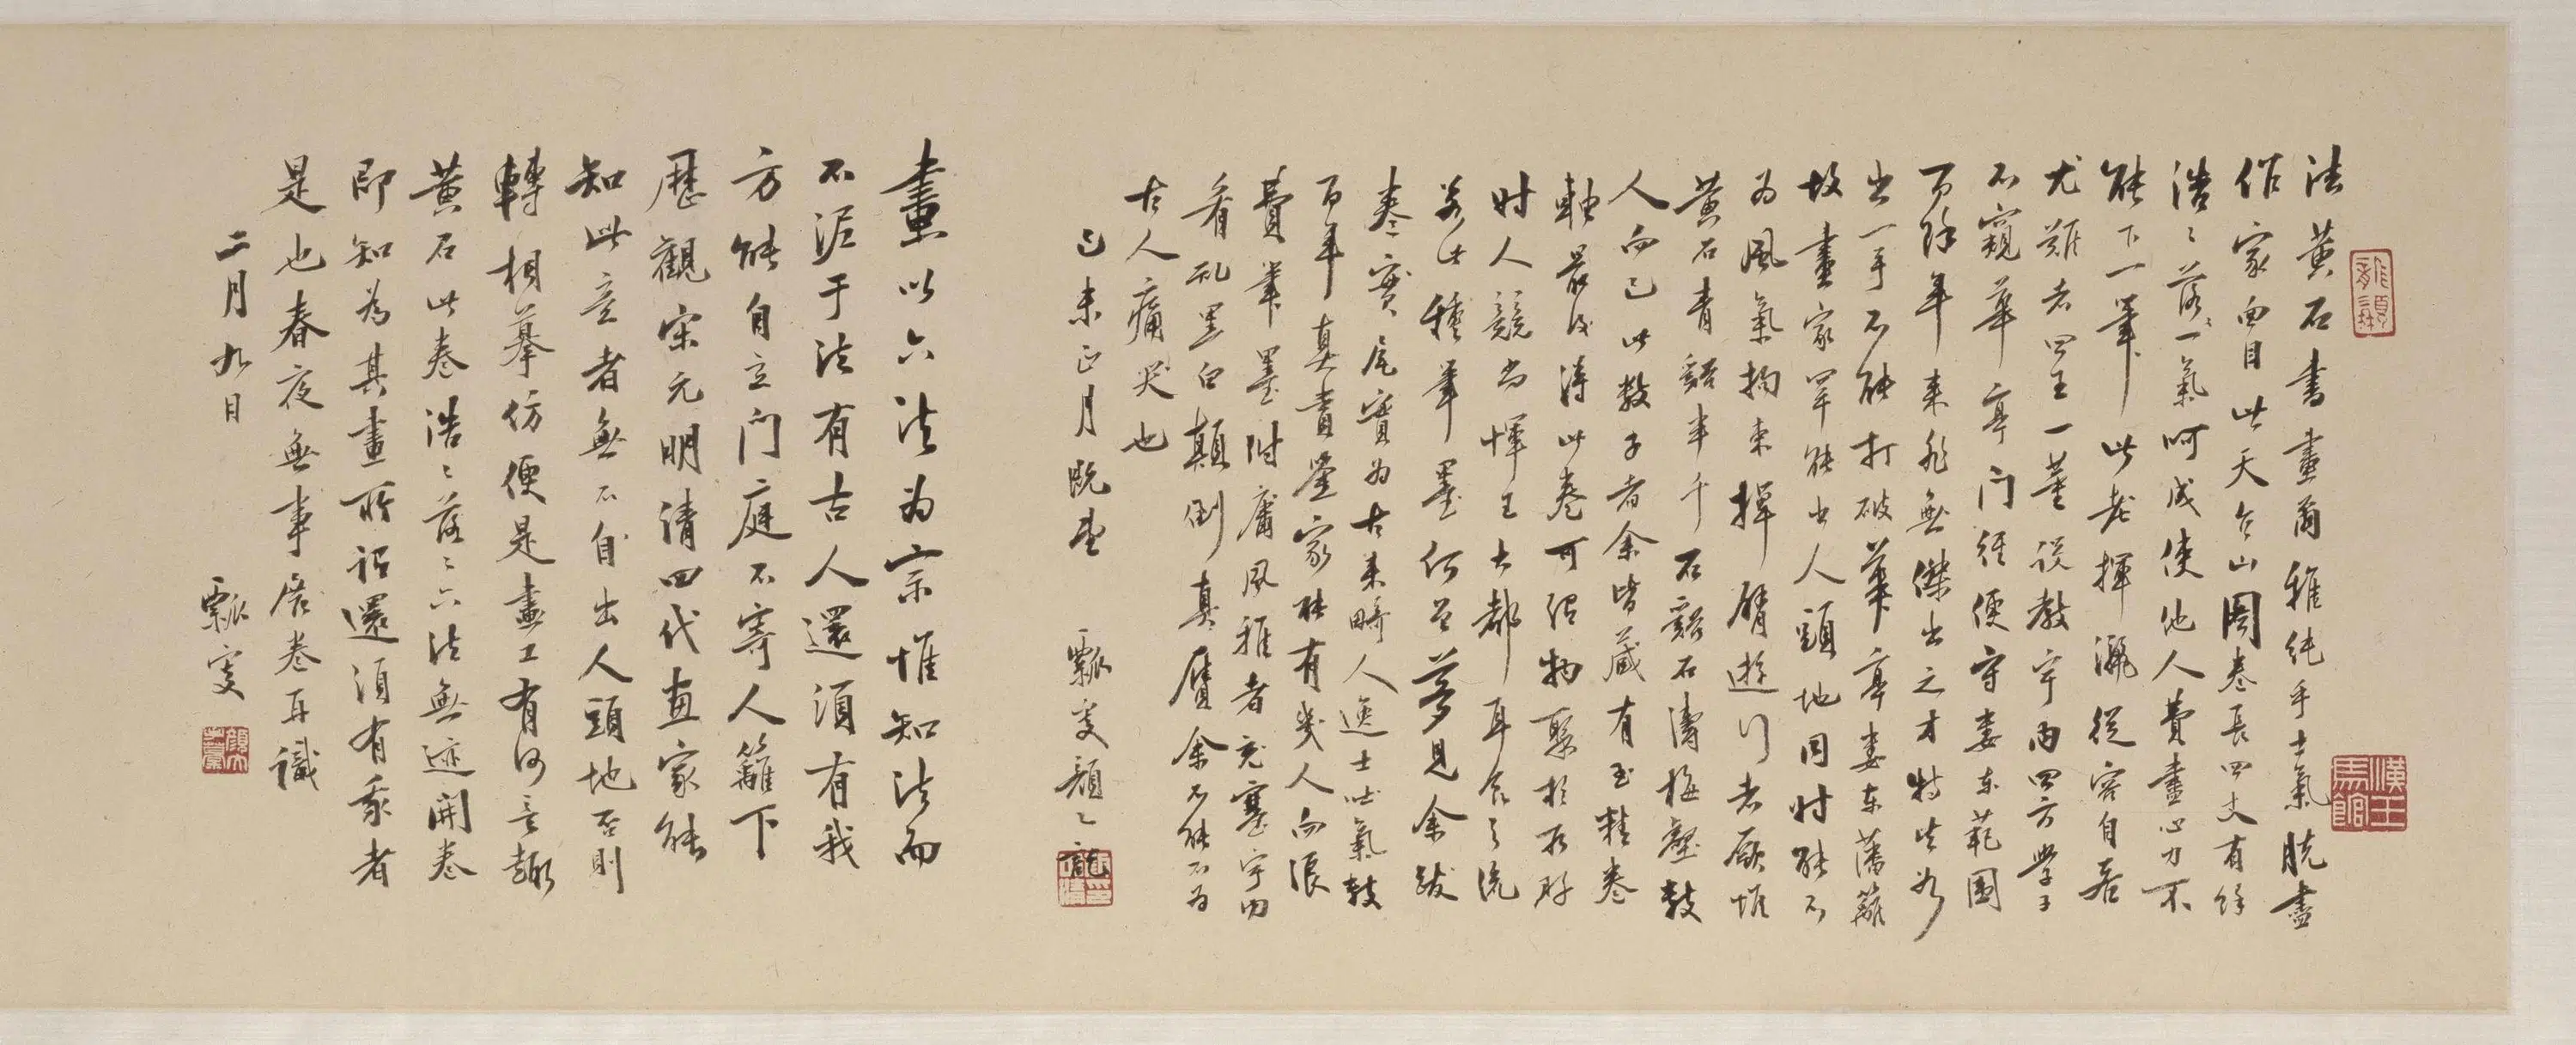 法黄石書畫爾雅純手士氣脫盡
作家面目此天台山圖卷長四丈有餘
浩〻落〻一氣呵成使他人費盡心力不
能下一筆此老揮灑從容自若
尤難者四王一董設教宇內四方學子
不窺華亭門徑便守婁東範圍
百餘年來非無傑出之才特皆如
出一手不能打破華亭婁東藩籬
故畫家罕能出人頭地同時能不
為風氣拘束掉臂遊行者厥惟
黄石青谿半千石谿石濤梅壑數
人而已此數子者余皆藏有至精卷
軸最後得此卷可謂物聚於所好
时人競尚惲王大都耳食之流
若此種筆墨何曾夢見余跋
卷尾實為古來畸人逸士吐氣數
百年真賞鑒家能有幾人而浪
費筆墨附庸風雅者充塞宇內
肴亂黑白顛倒真贋余不能不為
古人痛哭也
己未正月既望 瓢叟顏〻龍
畫以六法為宗惟知法而
不泥于法有古人還須有我
方能自立門庭不寄人籬下
歷觀宋元明清四代画家能
知此意者無不自出人頭地否則
轉相摹仿便是畫工有何意趣
黄石此卷浩〻落〻六法無迹開卷
即知為其畫所謂還須有我者
是也春夜無事展卷再識
二月九日 瓢叟
漢王
馬館